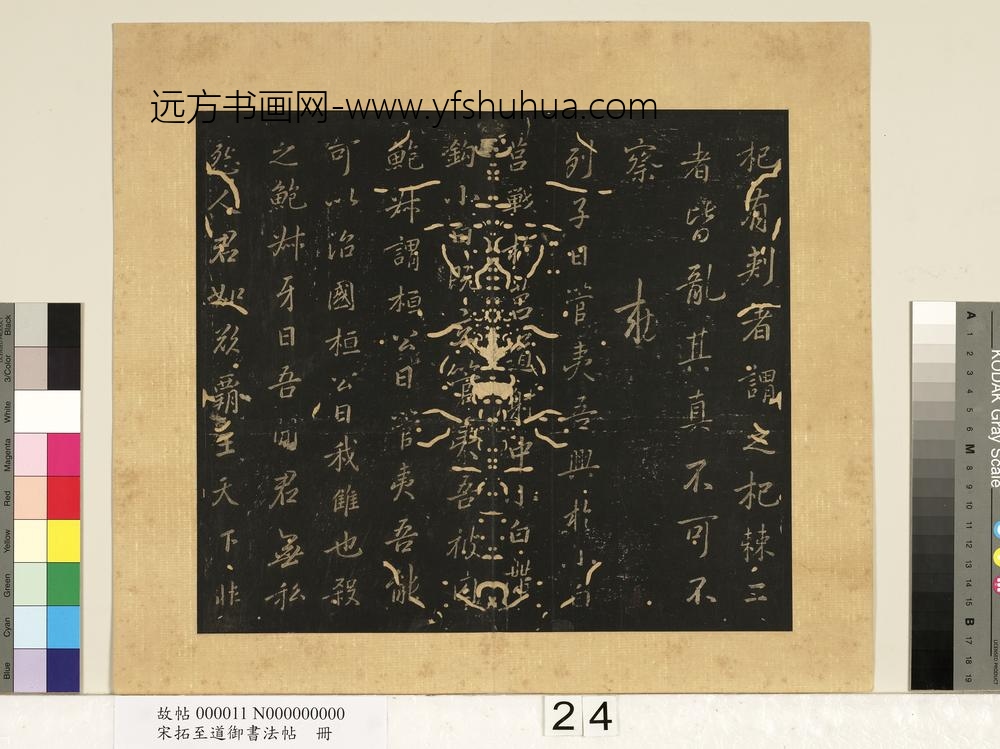 远方书画网-www.yfshuhua.com
杞有刺者謂之杞棘三
者皆亂其真不可不
察
列子曰管夷吾與於小白
莒戰於莒道射中小白帶
鉤小白既立管夷吾被囚
鮑叔謂桓公曰管夷吾能
可以治國桓公曰我讎也殺
之鮑叔牙曰吾聞君無私
怨人君如欲霸王天下非
Black
3/Color
White
Magenta
Red
Yellow
Green
Cyan
Blue
KODAK Gray Scale
A 1 2 3 4 5 6 M 8 9 10 11 12 13 14 15 B 17 18 19
故帖 000011 N000000000
宋拓至道御書法帖 冊
24